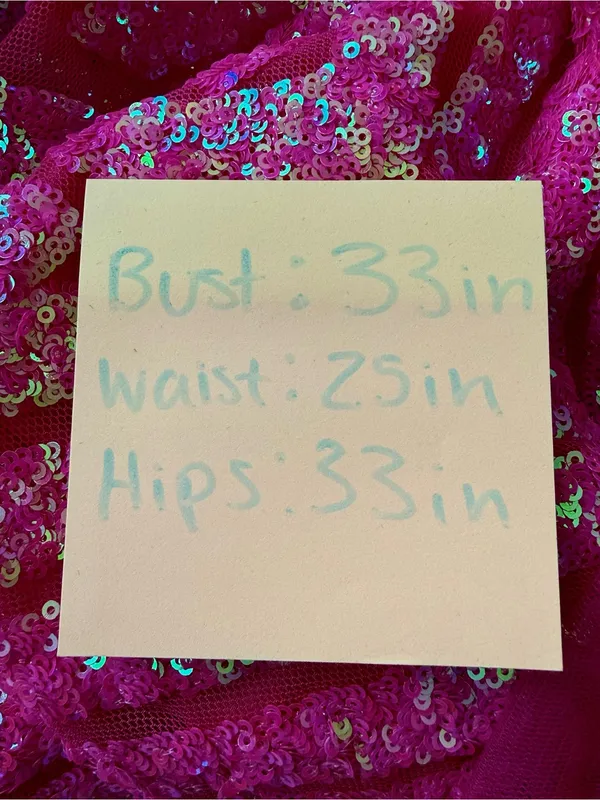 Bust: 33in
Waist: 25in
Hips: 33in